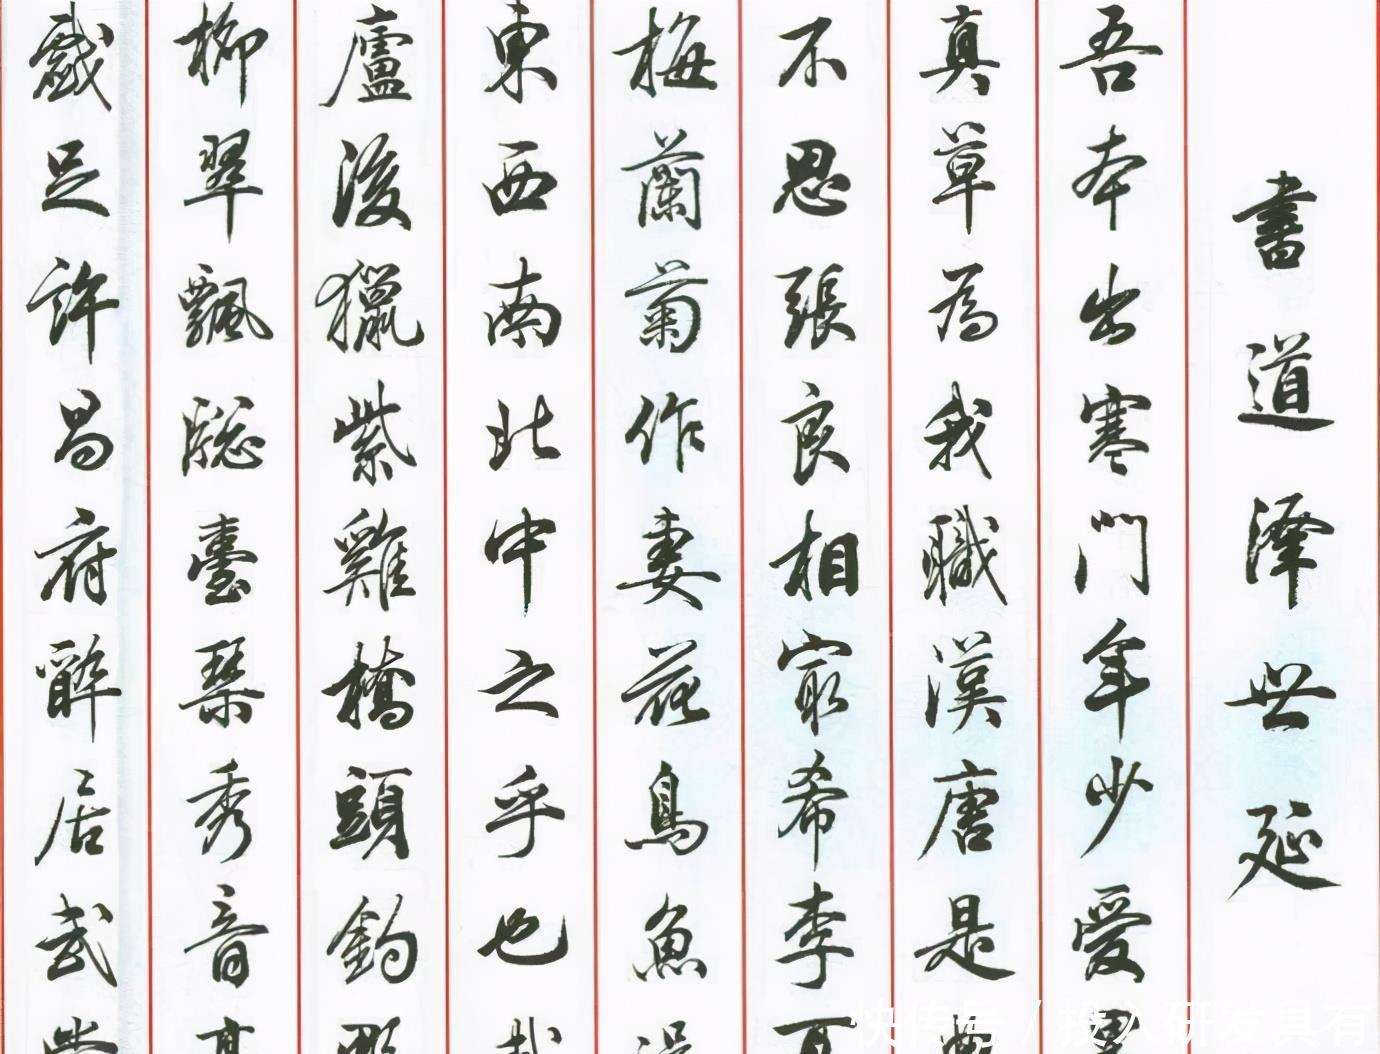 書道澤世延
吾本出寒門年少愛
真草為我職漢唐是
不思張良相寧希李
梅蘭菊作妻花鳥魚
東西南北中之乎也哉
廬後獵紫雞橋頭釣
柳翠飄聰臺琴秀音
戲足許昌府醉居武
快传号 / 投入研发具有